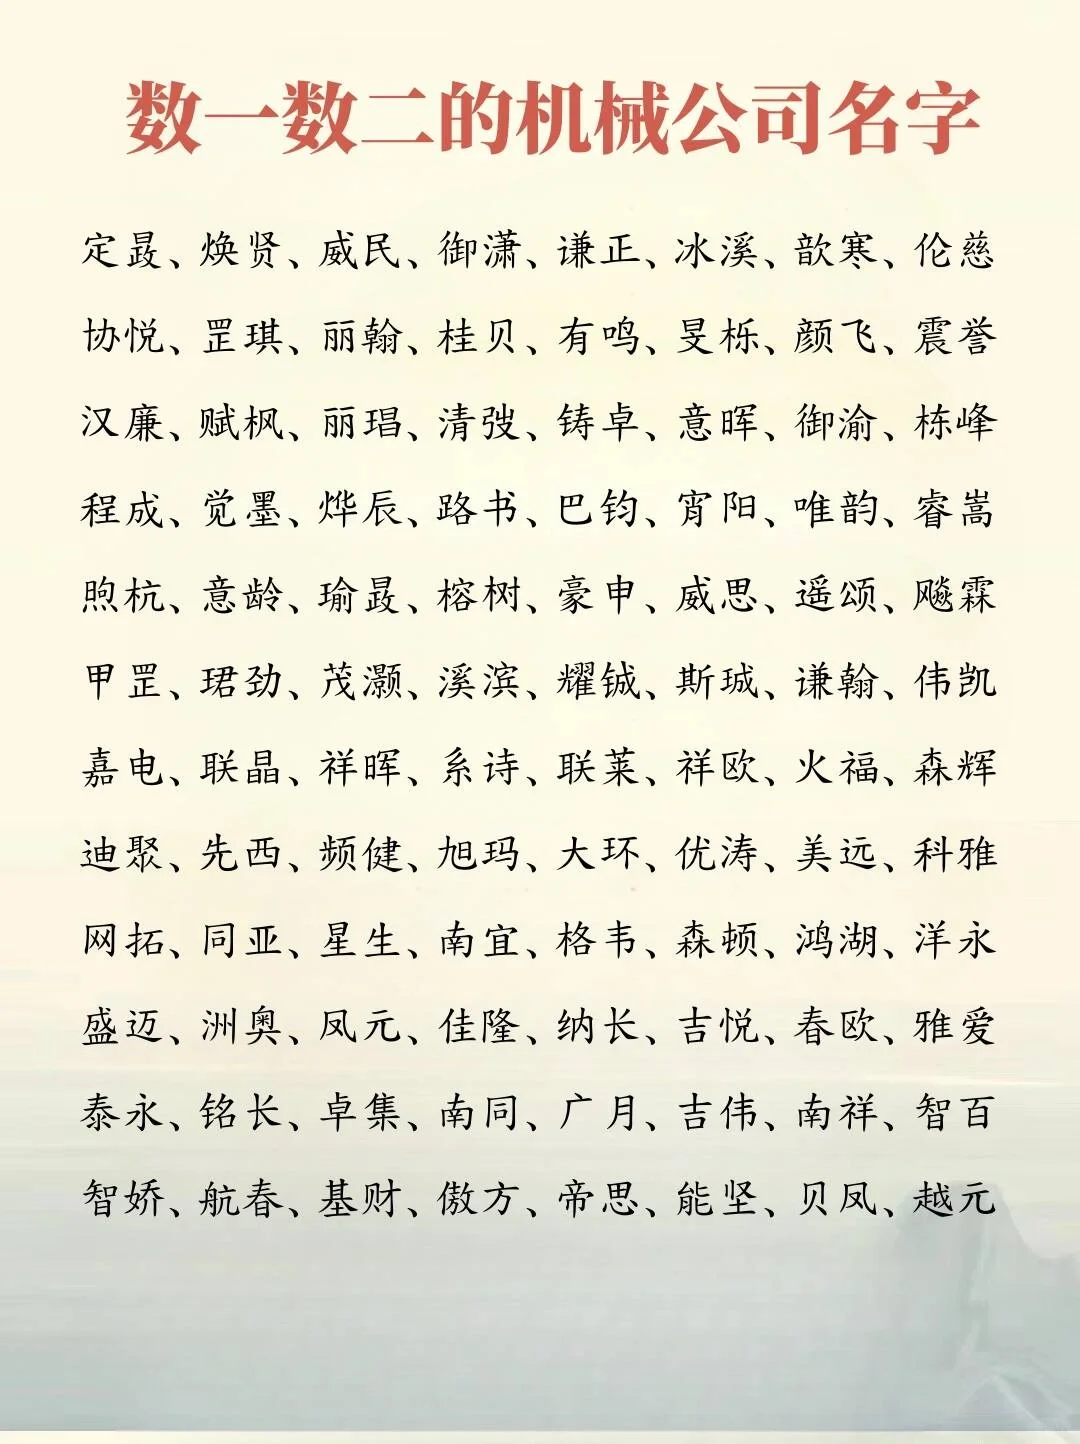 数一数二的机械公司名字
定晸、焕贤、威民、御潇、谦正、冰溪、歆寒、伦慈
协悦、罡琪、丽翰、桂贝、有鸣、旻栎、颜飞、震誉
汉廉、赋枫、丽琩、清弢、铸卓、意晖、御渝、栋峰
程成、觉墨、烨辰、路书、巴钧、宵阳、唯韵、睿嵩
煦杭、意龄、瑜晸、榕树、豪申、威思、遥颂、飚霖
甲罡、珺劲、茂灏、溪滨、耀铖、斯珹、谦翰、伟凯
嘉电、联晶、祥晖、系诗、联莱、祥欧、火福、森辉
迪聚、先西、频健、旭玛、大环、优涛、美远、科雅
网拓、同亚、星生、南宜、格韦、森顿、鸿湖、洋永
盛迈、洲奥、凤元、佳隆、纳长、吉悦、春欧、雅爱
泰永、铭长、卓集、南同、广月、吉伟、南祥、智百
智娇、航春、基财、傲方、帝思、能坚、贝凤、越元